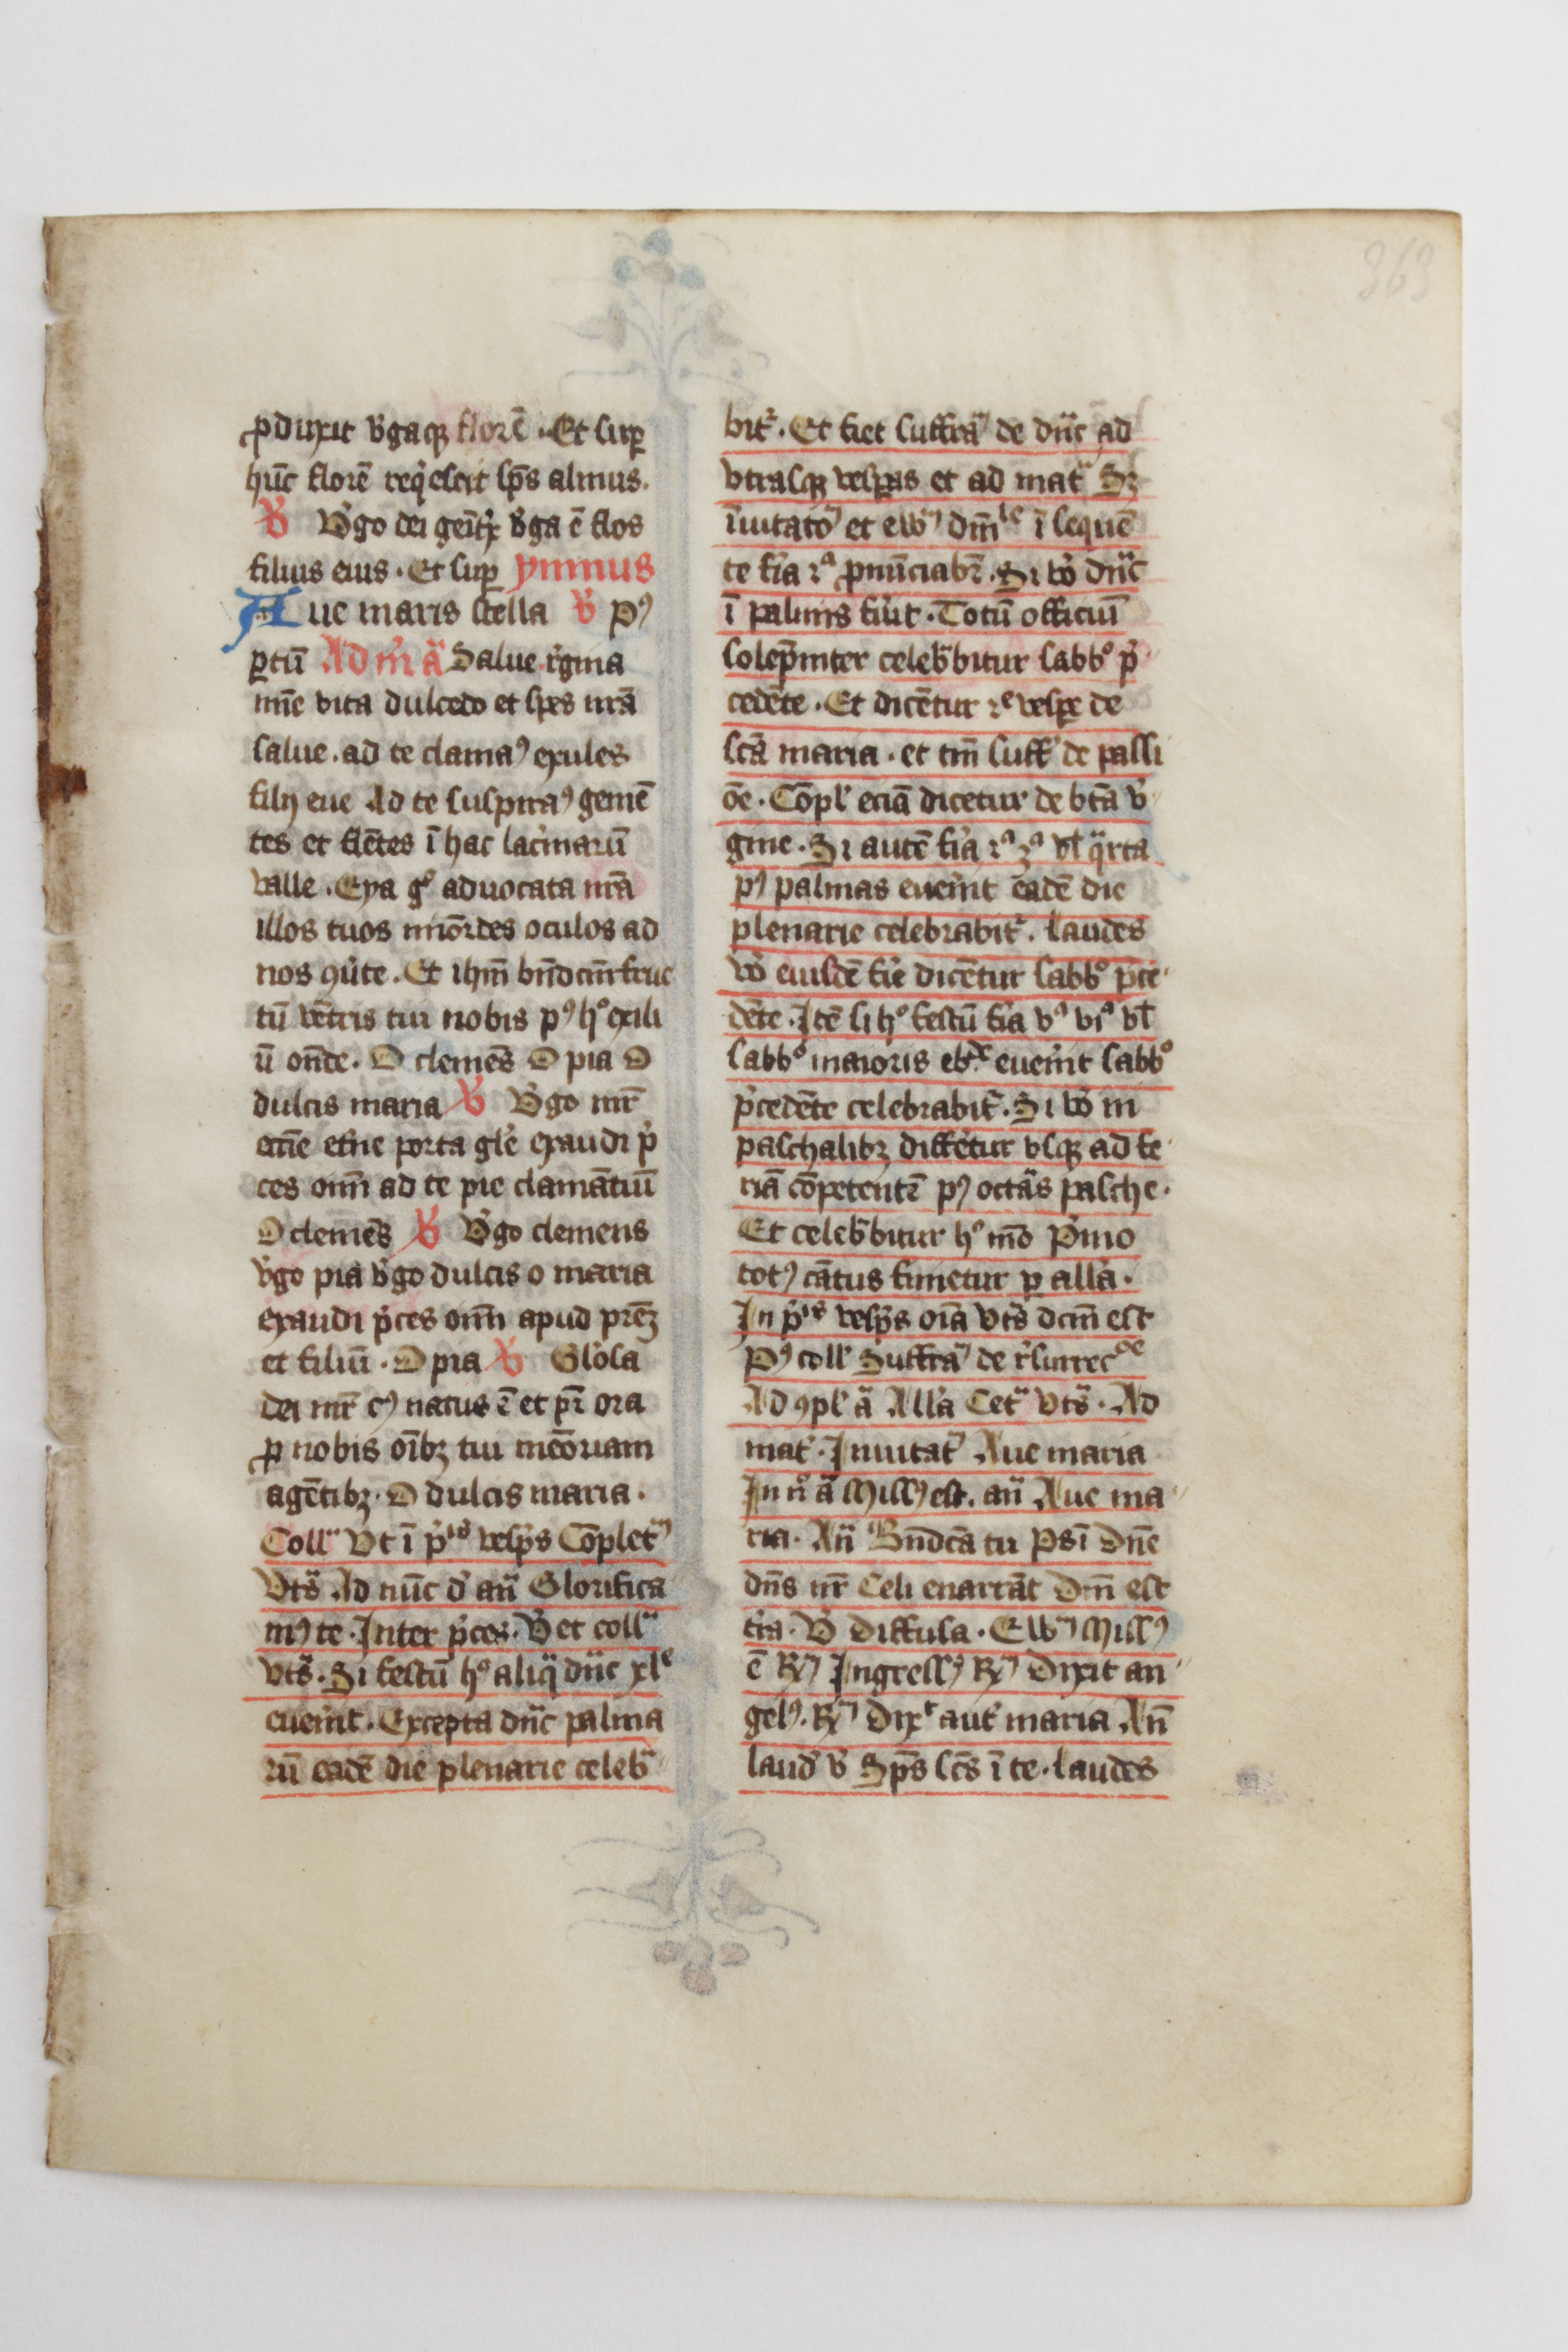 363
ꝓduxit v̾gaqꝫ florē . Et suꝑ
hūc florē req̇escit sp̄s almus.
V̾ V̾go dei genit̾x v̾ga ē flos
filius eius . Et suꝑ ymnus
Aue maris stella V̾ pꝰ
ꝑtū Ad m̄ ā Salue r̾gina
mīe vita dulcedo et spes nr̄a
salue . ad te clamaꝰ exules
filij eue Ad te suspiraꝰ gemē
tes et flētes ī hac lac̾maruꝫ
valle . Eya gͦ aduocata nr̄a
illos tuos mīcordes oculos ad
nos ꝯu̾te . Et ihm̄ bn̄dcm̄ fruc
tū vētris tui nobis pꝰ hͦ exili
ū on̄de . O clemēs O pia O
dulcis maria V̾ V̾go mr̄
eccīe et̾ne porta gl̾e exaudi p̾
ces om̄ī ad te pie clamātiū
O clemēs V̾ V̾go clemens
v̾go pia v̾go dulcis o maria
exaudi p̾ces om̄ī apud pr̄eꝫ
et filiū . O pia V̾ Gl̾osa
dei mr̄ cꝰ natus ē et pr̄ ora
ꝓ nobis oībꝫ tui meōriam
agētibꝫ . O dulcis maria .
Coll̾ Vt ī p̾ⁱˢ vesp̾s Cōplet̾
Vts̾ Ad nūc d̾ an̄ Glorifica
mꝰ te . Inter p̾ces . V̾ et coll̾
vts̾ . Si festū hͦ aliq̾ dn̄c xlᵉ
euen̾it . Excepta dn̄c palma
rū eadē die plenarie celeb̾
bit̾ . Et fiet suffra̾ de dn̄c ad
vtrasqꝫ vesꝑas et ad mat̾ Sꝫ
īuitato̾ et ew̾ dm̄ˡᵉ ī sequē
te fi̾a 2ᵃ ꝓnūciabr̄ . Si v̾o dn̄c
ī palmis fu̾it . Totū officiū
solēp̄niter celeb̾bitur sabbͦ p̾
cedēte . Et dicētur 2ᵉ vesꝑe de
sc̄ā maria . et tm̄ suff̾ de passi
ōe . Cōpl̾ eciā dicetur de bt̄a v̾
gine . Si autē fi̾a 2ᵃ 3ᵃ vl̾ q̾rta
pꝰ palmas euen̾it eadē die
plenarie celebrabit̾ . Laudes
v̾o eiusdē fi̾e dicētur sabbͦ p̾ce
dēte . Itē si hͦ festū fi̾a vᵃ viᵃ vl̾
sabbͦ maioris ebᵈᵉ euen̾it sabbͦ
p̾cedēte celebrabit̾ . Si v̾o in
paschalibꝫ differ̾tur vsqꝫ ad fe
riā cōpetentē pꝰ octa̾s pasche .
Et celeb̾bitur hͦ mō Pͥmo
totꝰ cātus finietur ꝑ all̾a .
In p̾ⁱˢ vesp̾s oīa vts̾ dcm̄ est
Pꝰ coll̾ Suffra̾ de r̾surrecᵒᵉ
Ad ꝯpl̾ ā All̾a Cet̾ vts̾ . Ad
mat̾ . Inuitat̾ Aue maria
In n̊ ā Missꝰ est . an̄ Aue ma
ria . An̄ Bn̄dc̄a tu Ps̄ī Dn̄e
dn̄s nr̄ Celi enarrāt Dm̄ est
t̾ra . V̾ Diffusa . Ew̾ Missꝰ
ē R̾ Ingressꝰ R̾ Dixit an
gelꝰ . R̾ Dixᵗ aut̾ maria An̄
laud̾ v̾ Sp̄s sc̄s ī te . laudes